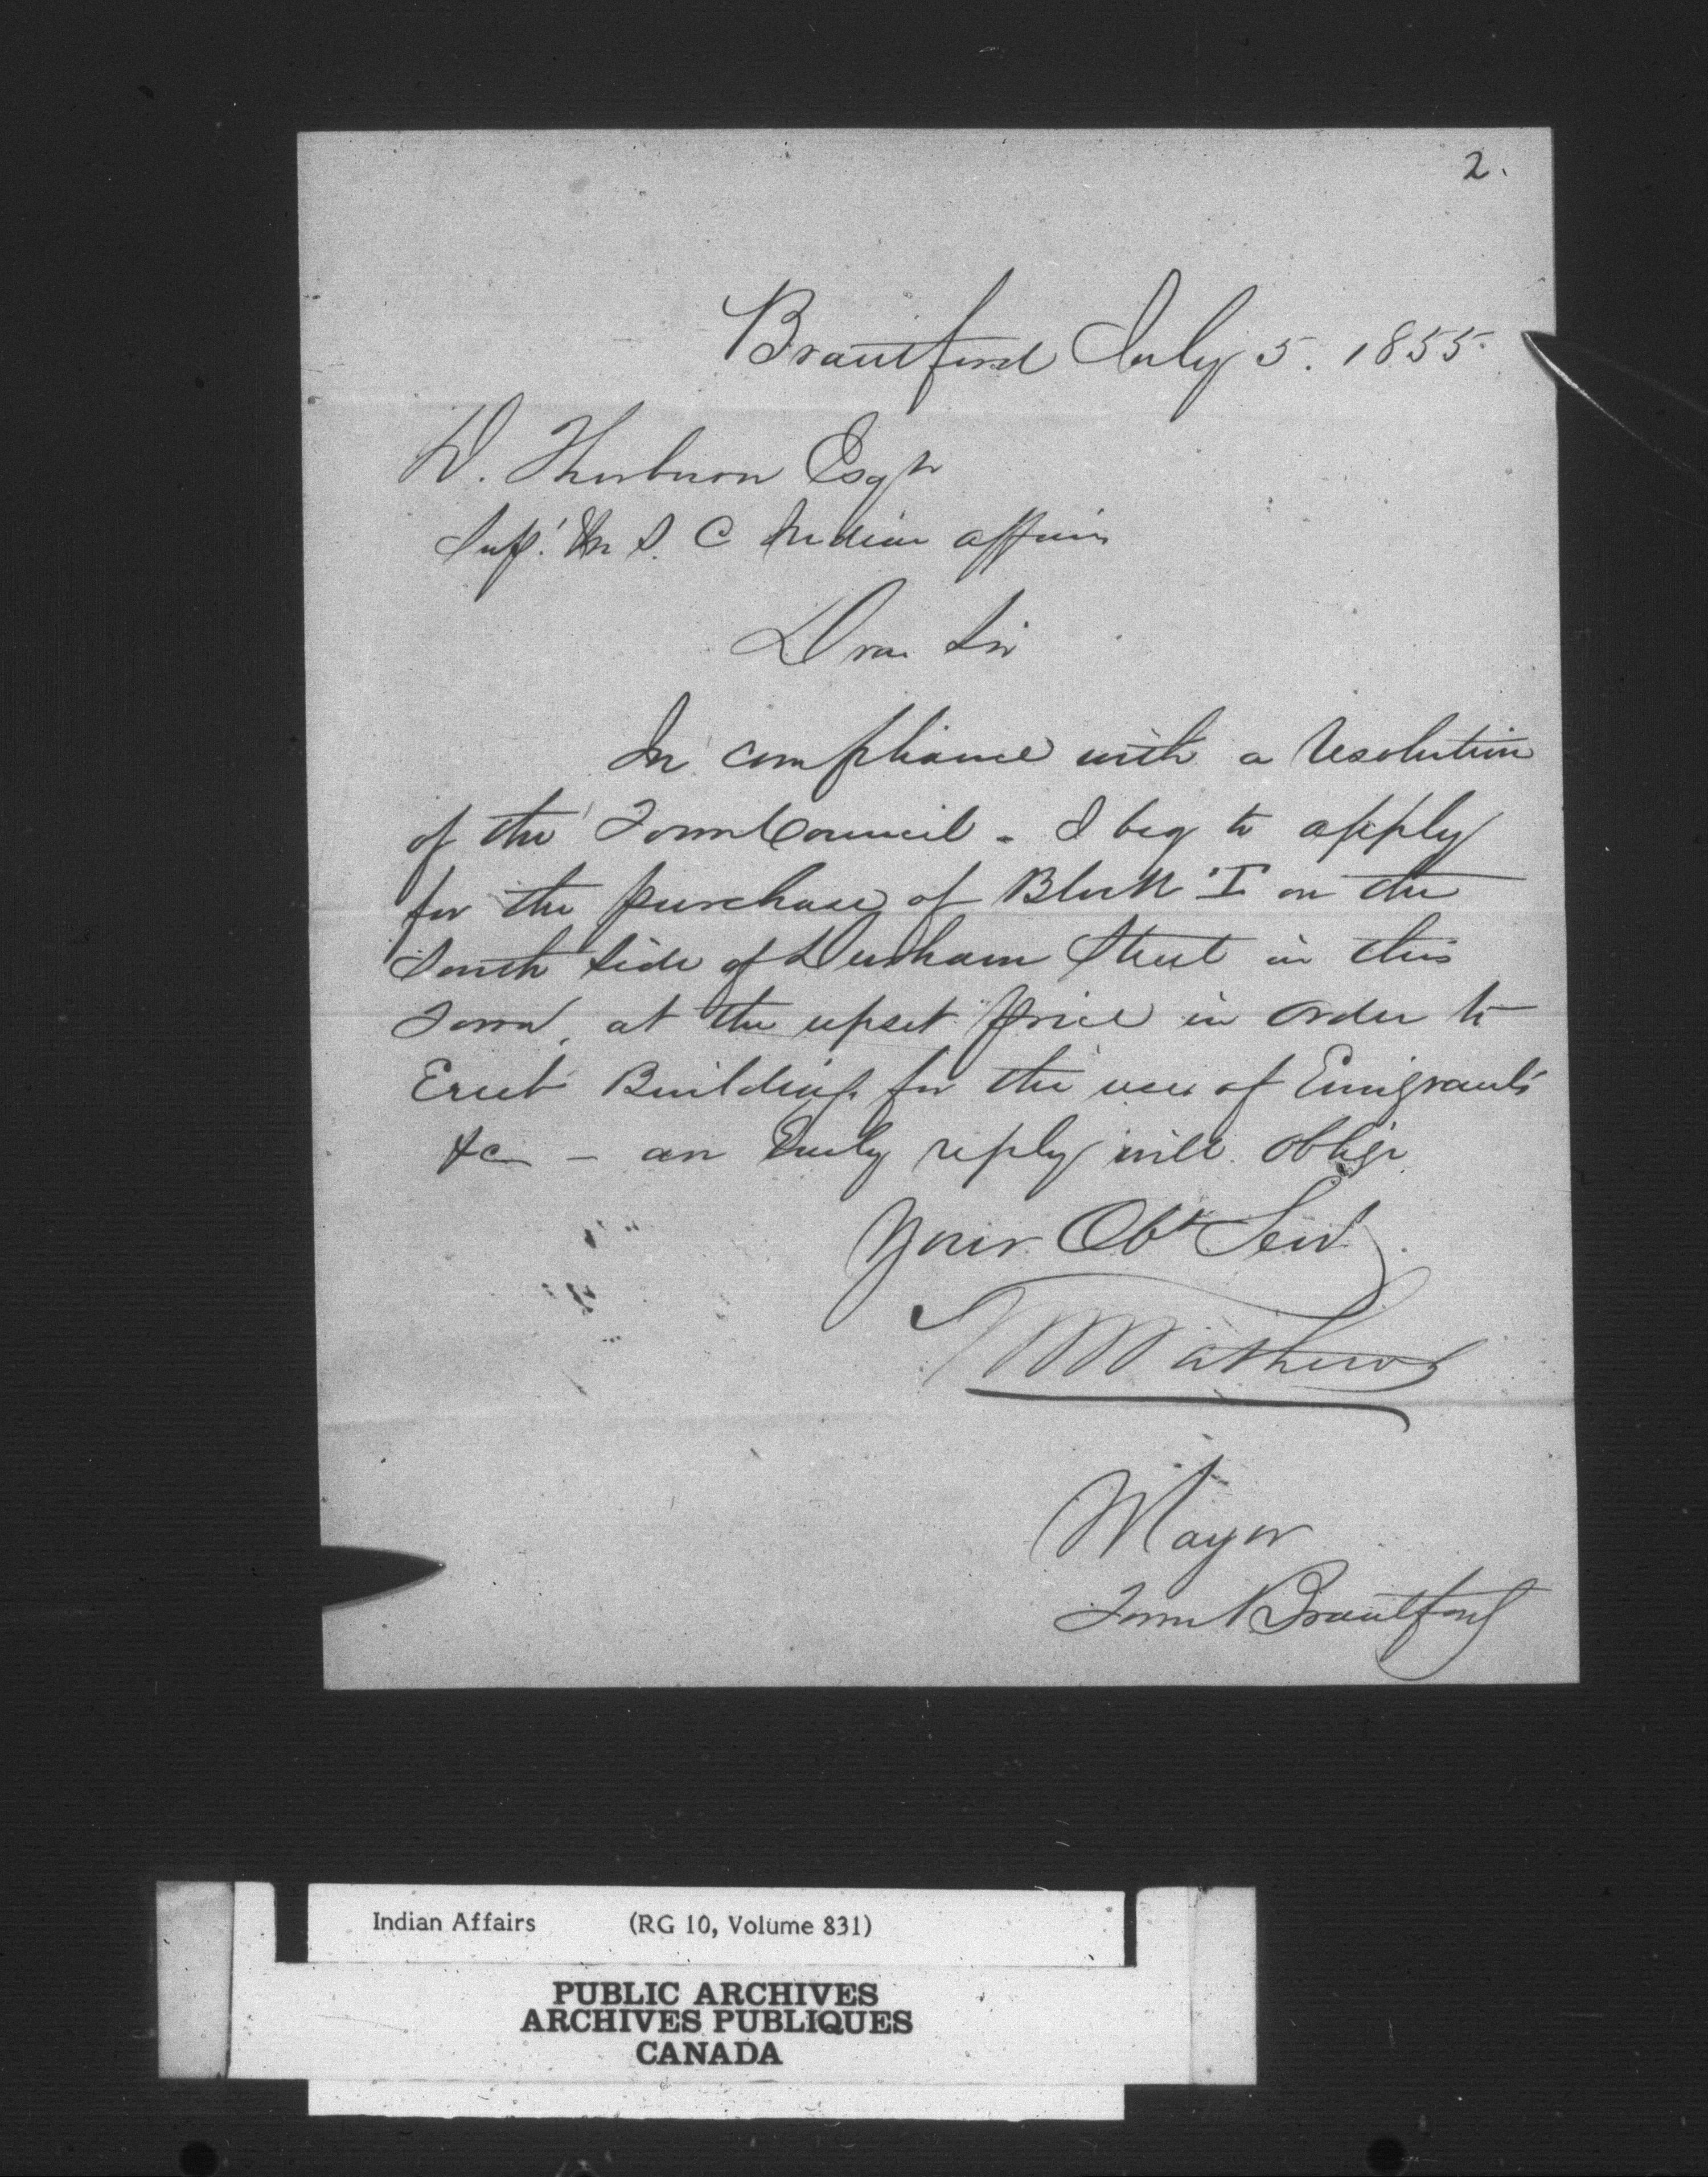 2.
Brantford July 5. 1855.
D. Thorburn Esqr
Supt. In S. C Indian affairs
Dear Sir
In compliance with a resolution
of the Town Council - I beg to apply
for the purchase of Block 'I' on the
South Side of Durham Street in this
Town, at the upset price in order to
Erect Buildings for the use of Emigrants
&c - an Early reply will oblige
Your Obt Servt
Mathews
Mayor
Town Brantford
Indian Affairs (RG 10, Volume 831)
PUBLIC ARCHIVES
ARCHIVES PUBLIQUES
CANADA